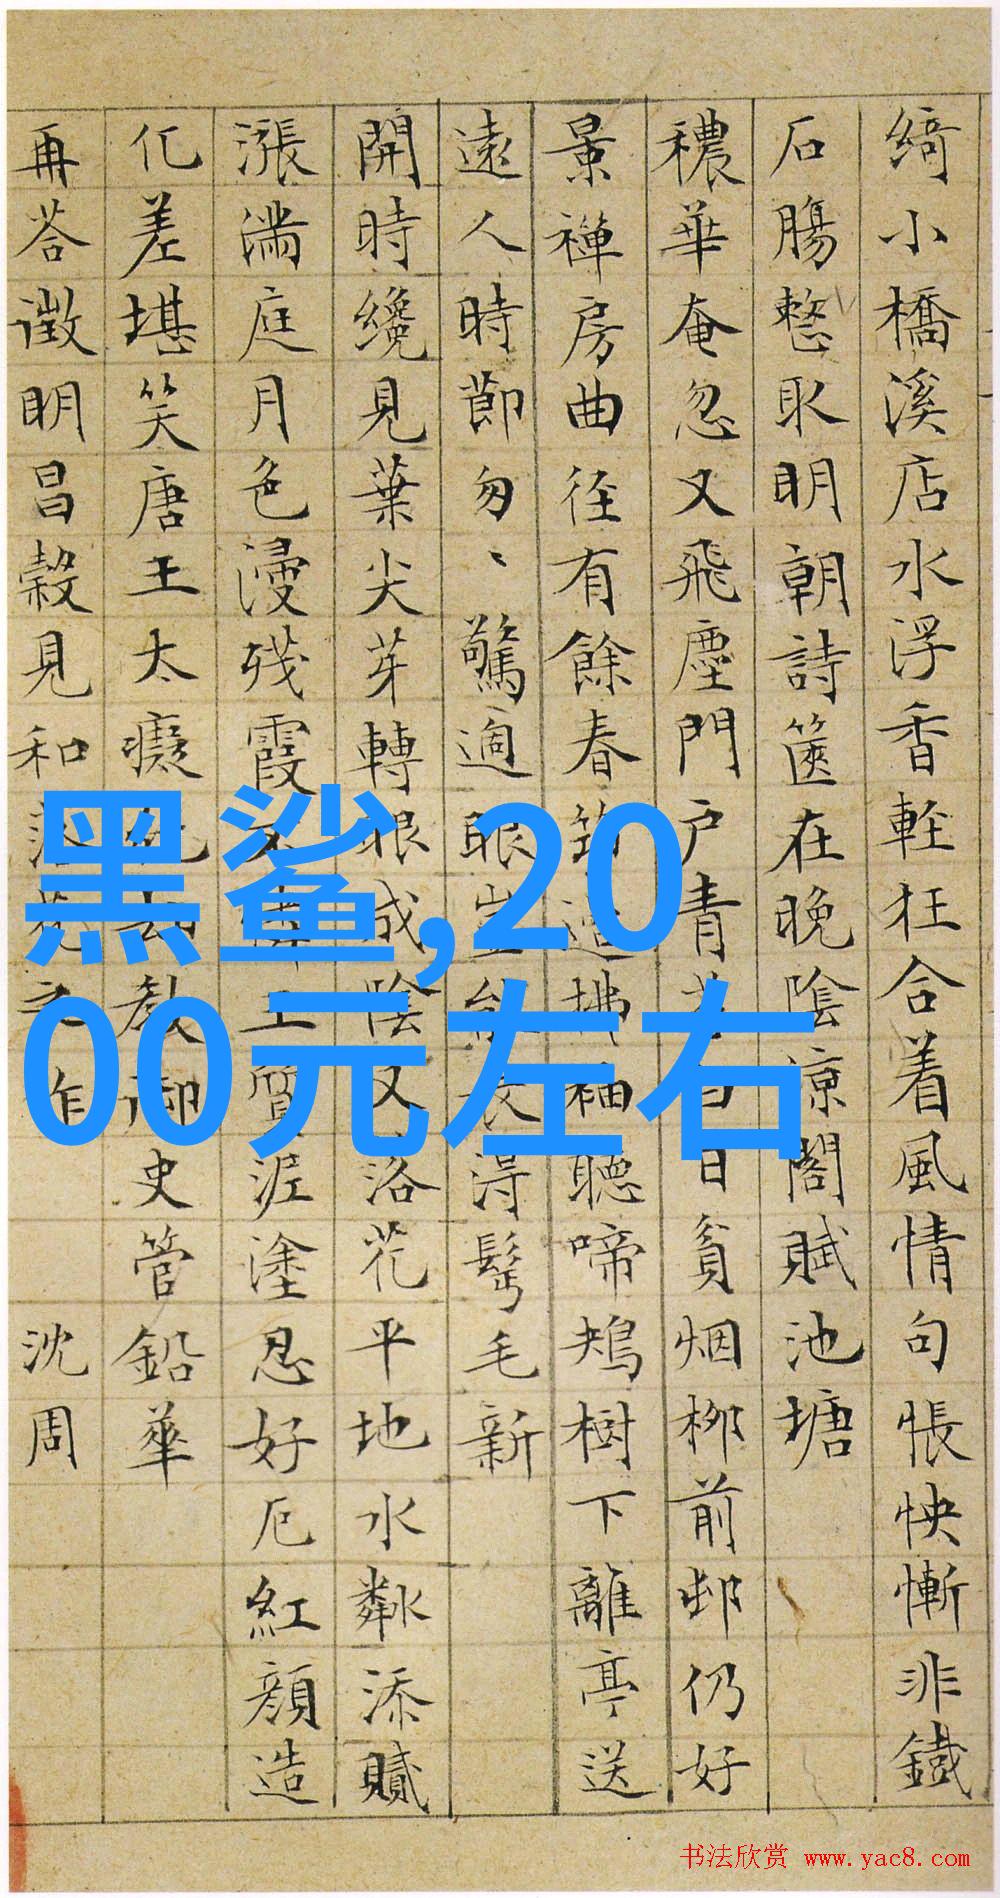 綺小橋溪店水浮香輕狂合着風情句悵怏慚非鐵
石腸愁取明朝詩篋在晚陰凉閣賦池塘
穠華奄忽又飛塵門戶青日貧烟柳前邨仍好
景禪房曲徑有餘春拂袖聽啼鴂樹下離亭送
遠人時節匆、驚過眼豈長得髩毛新
開時纔見葉尖芽轉眼成陰又落花平地水粼添贓
漲滿庭月色漫殘霞工質泥塗忍好厄紅顏造
化差堪笑唐王太癡教御史管鉛華
再答徵明昌穀見和落花之作 沈周
黑鲨,20
00元左右
书法欣赏 www.yac8.com